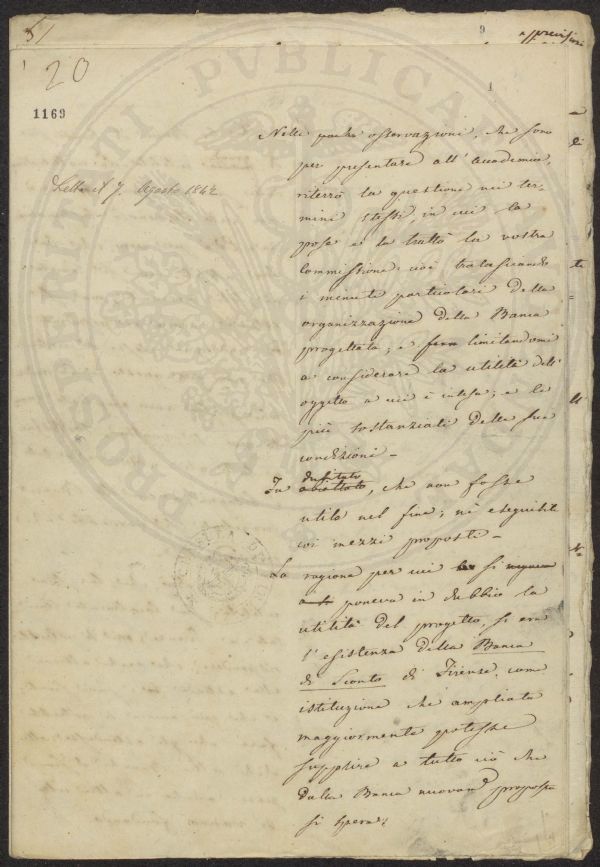 51
9
20
1
1169
Letta il 7. Agosto 1842
Nelle poche osservazioni, che sono
per presentare all'Accademia,
riterrò la questione nei ter-
mini stessi, in cui la
pose e la trattò la vostra
Commissione: cioè tralasciando
i minuti particolari della
organizzazione della Banca
progettata; e limitandomi
a considerare la utilità dell'
oggetto a cui è intesa; e le
più sostanziali delle sue
condizioni -
dubitato
Fu obiettato, che non fosse
utile nel fine; nè eseguibile
coi mezzi proposti -
La ragione per cui si
poneva in dubbio la
utilità del progetto, si era
l'esistenza della Banca
di Sconto di Firenze, come
istituzione che ampliata
maggiormente potesse
supplire a tutto ciò che
dalla Banca nuovamente proposta
si spera;
PROSPERITATI PUBLICAE